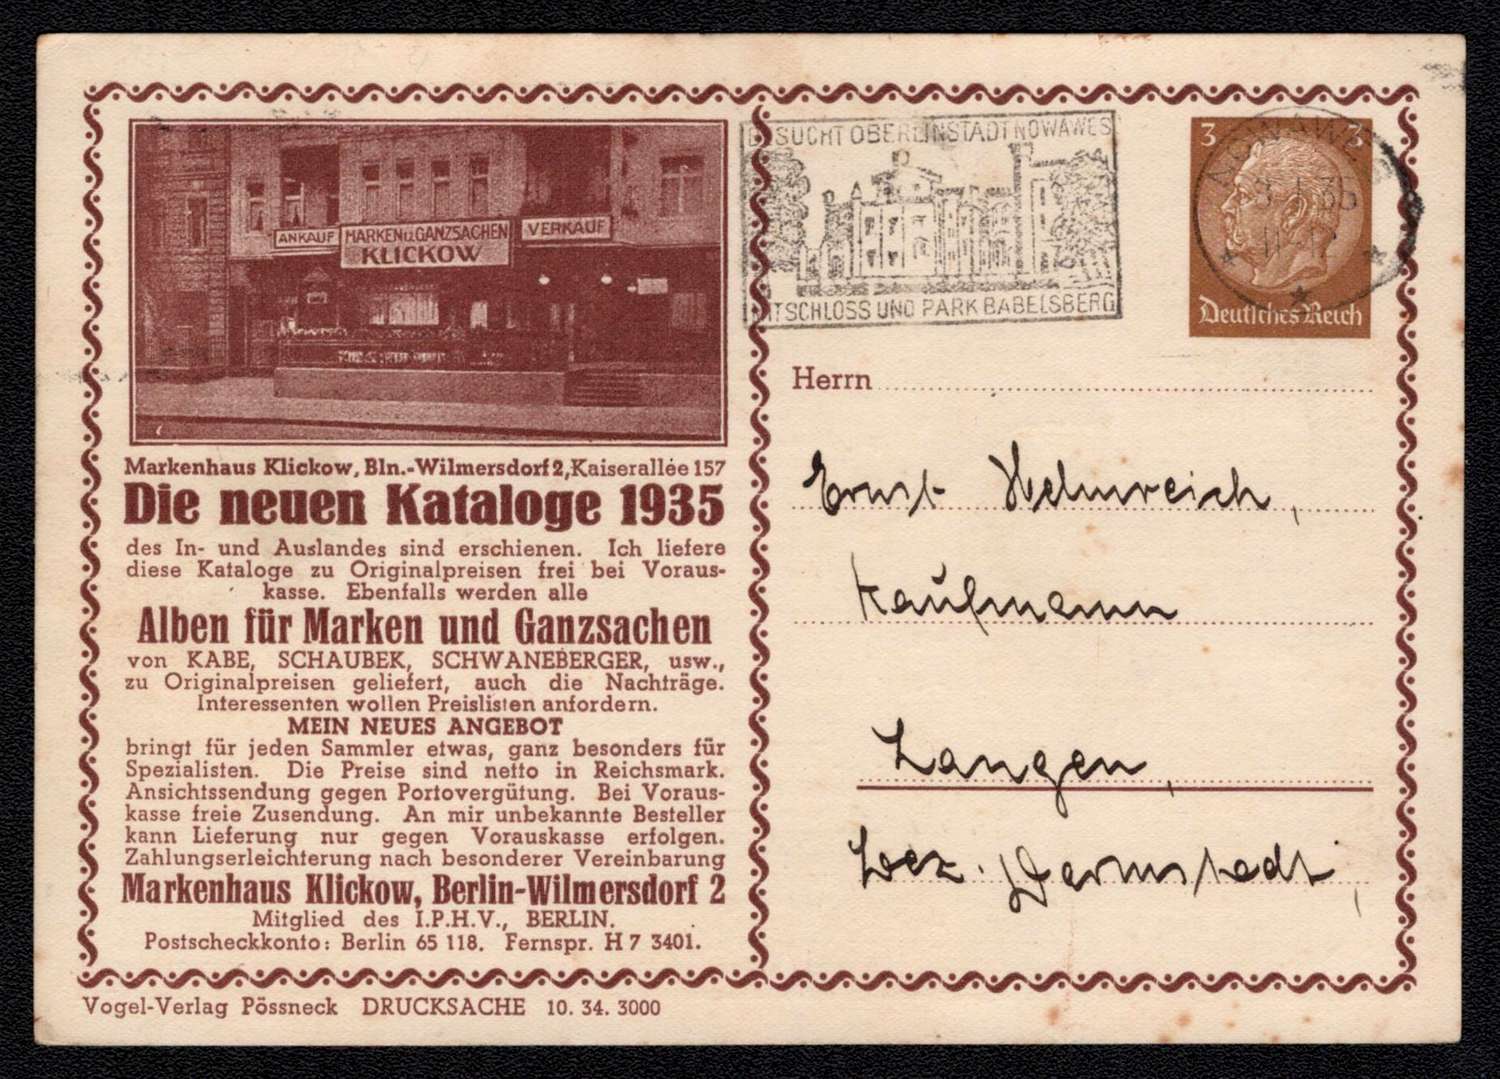 ANKAUF
MARKEN u. GANZSACHEN
KLICKOW
VERKAUF
Markenhaus Klickow, Bln.-Wilmersdorf 2, Kaiserallée 157
Die neuen Kataloge 1935
des In- und Auslandes sind erschienen. Ich liefere
diese Kataloge zu Originalpreisen frei bei Voraus-
kasse. Ebenfalls werden alle
Alben für Marken und Ganzsachen
von KABE, SCHAUBEK, SCHWANEBERGER, usw.,
zu Originalpreisen geliefert, auch die Nachträge.
Interessenten wollen Preislisten anfordern.
MEIN NEUES ANGEBOT
bringt für jeden Sammler etwas, ganz besonders für
Spezialisten. Die Preise sind netto in Reichsmark.
Ansichtssendung gegen Portovergütung. Bei Voraus-
kasse freie Zusendung. An mir unbekannte Besteller
kann Lieferung nur gegen Vorauskasse erfolgen.
Zahlungserleichterung nach besonderer Vereinbarung
Markenhaus Klickow, Berlin-Wilmersdorf 2
Mitglied des I.P.H.V., BERLIN.
Postscheckkonto: Berlin 65 118. Fernspr. H 7 3401.
Vogel-Verlag Pössneck DRUCKSACHE 10. 34. 3000
BESUCHT OBERLINSTADT NOWAWES
MIT SCHLOSS UND PARK BABELSBERG
3 3
NOWAWES
Deutsches Reich
Herrn
Ernst Helmreich,
Kaufmann
Langen,
Bez. Darmstadt,